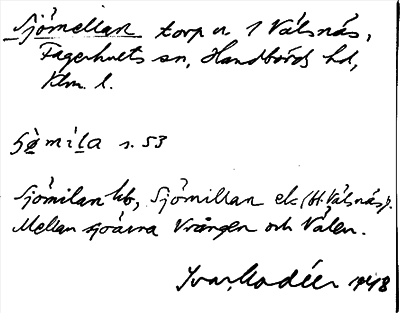 Sjömellan torp u. Välsnäs,
Fagerhults sn, Handbörds hd,
Klm. l.
s. 53
Sjömilan hb, Sjömillan ek (H. Välsnäs).
Mellan sjöarna Vrången och Välen.
Ivar Modéer 1943